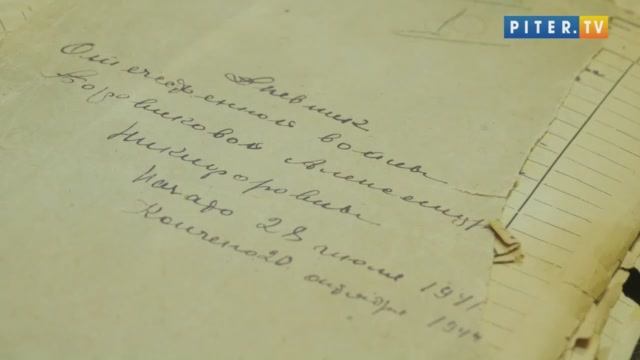 PITER.TV
Дневник
Отечественной войны
Боровиковой Александр
Никифоровны
Начадо 28 июля 1941
Кончено 20 октября 1944